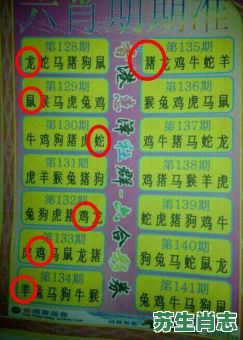 六肖期期准
第128期
龙蛇马猪狗鼠
第129期
鼠猴马虎兔鸡
第130期
牛鸡狗猪虎蛇
第131期
虎羊猴兔猪狗
第132期
兔狗虎猪鸡龙
第133期
虎鸡马鼠龙猪
第134期
羊兔马狗牛猴
第135期
猪龙鸡牛蛇羊
第136期
猴兔鸡虎马鼠
第137期
鸡牛猪马龙虎
第138期
鸡猪马猴羊虎
第139期
蛇虎猪狗鸡牛
第140期
狗兔马蛇鼠龙
第141期
兔蛇马虎猪牛
六合彩券
苏生肖志